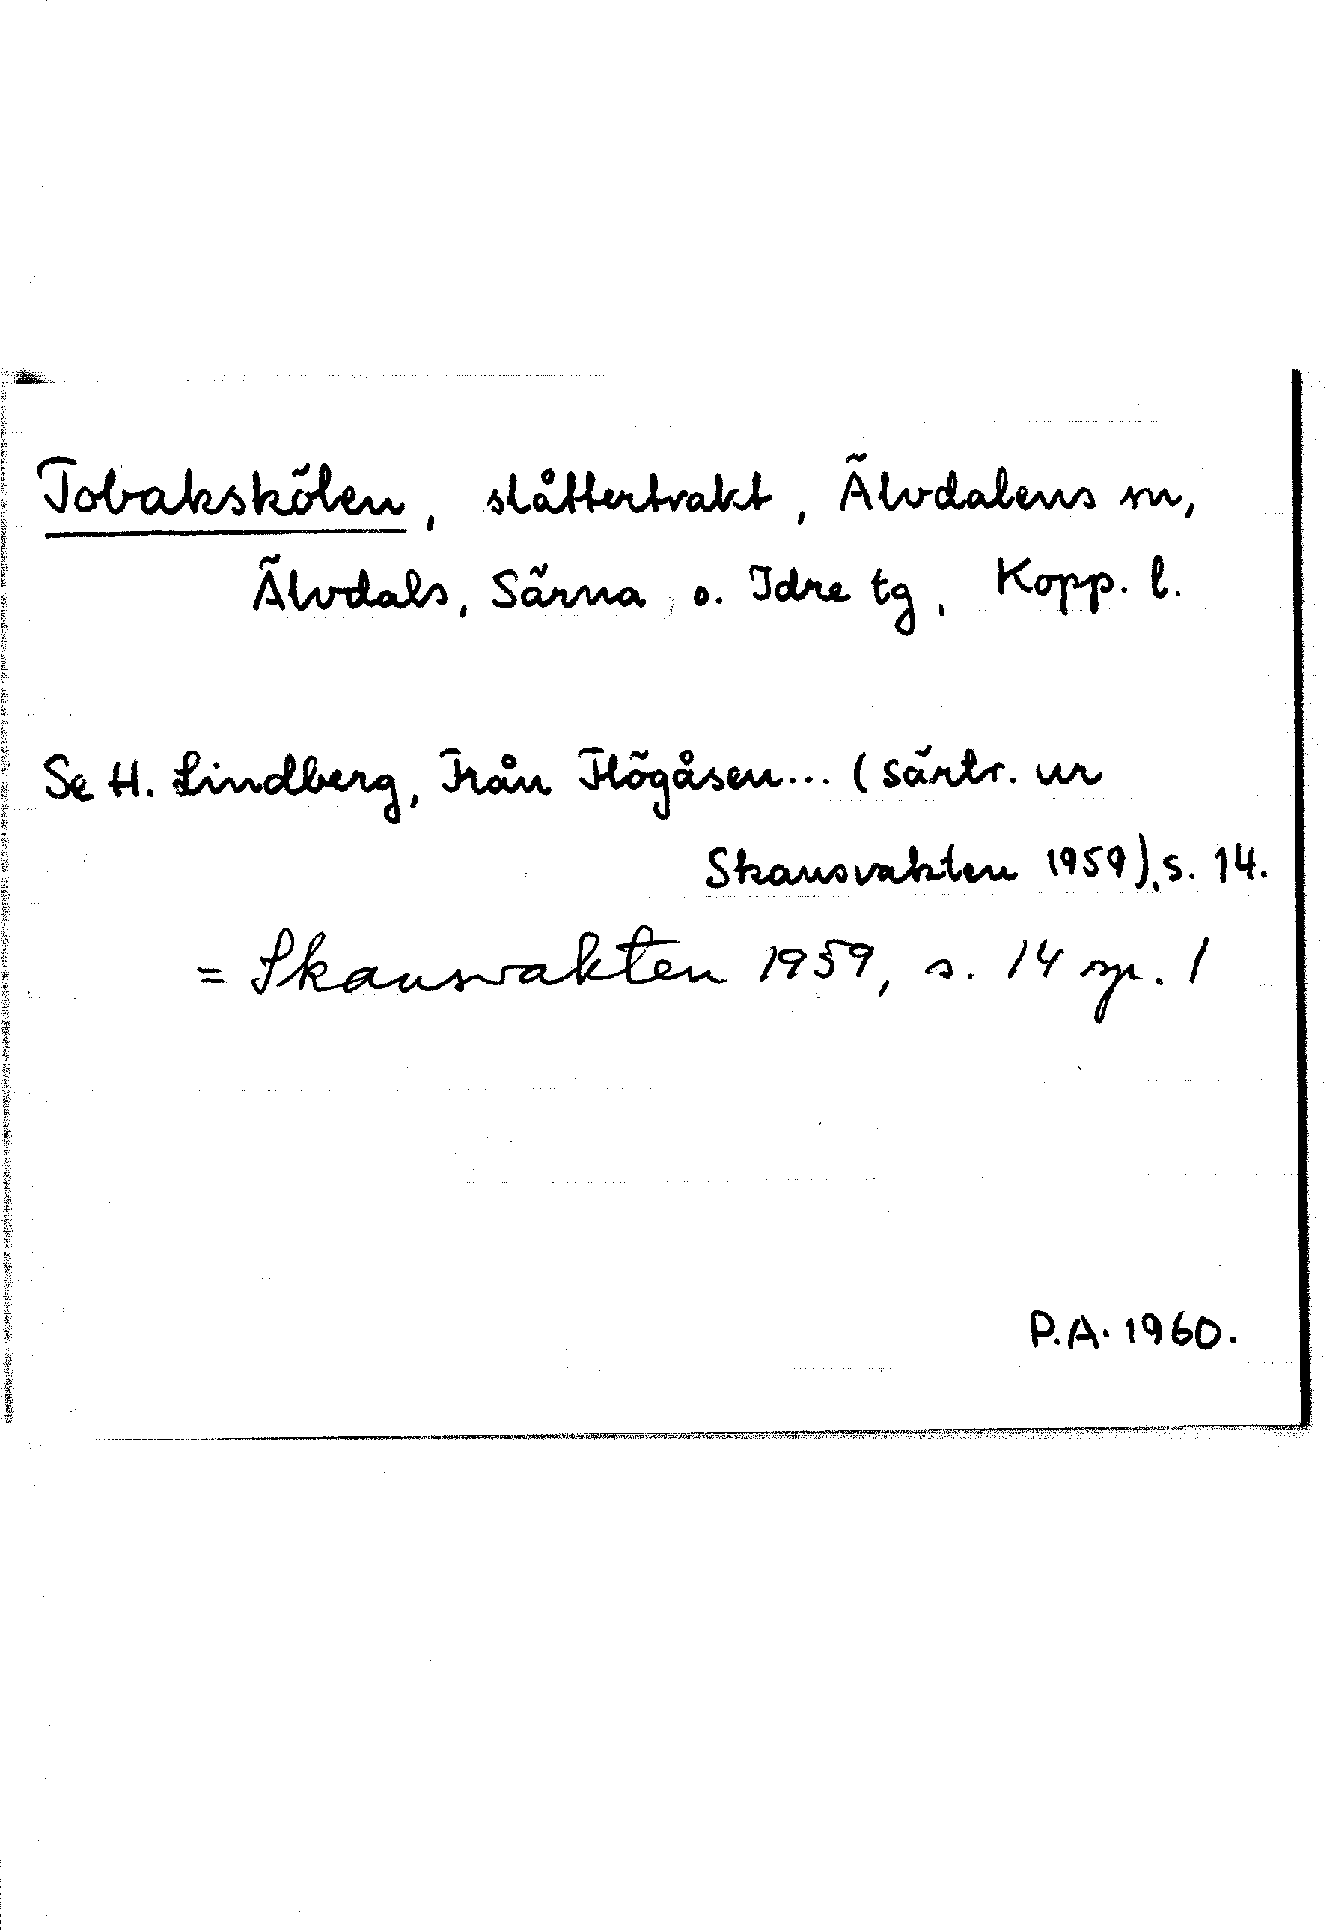 Tobakskölen, slåttertrakt, Älvdalens sn,
Älvdals, Särna o. Idre tg, Kopp. l.
Se H. Lindberg, Från Flögåsen... (särtr. ur
Skansvakten 1959), s. 14.
= Skansvakten 1959, s. 14 sp. 1
P.A. 1960.